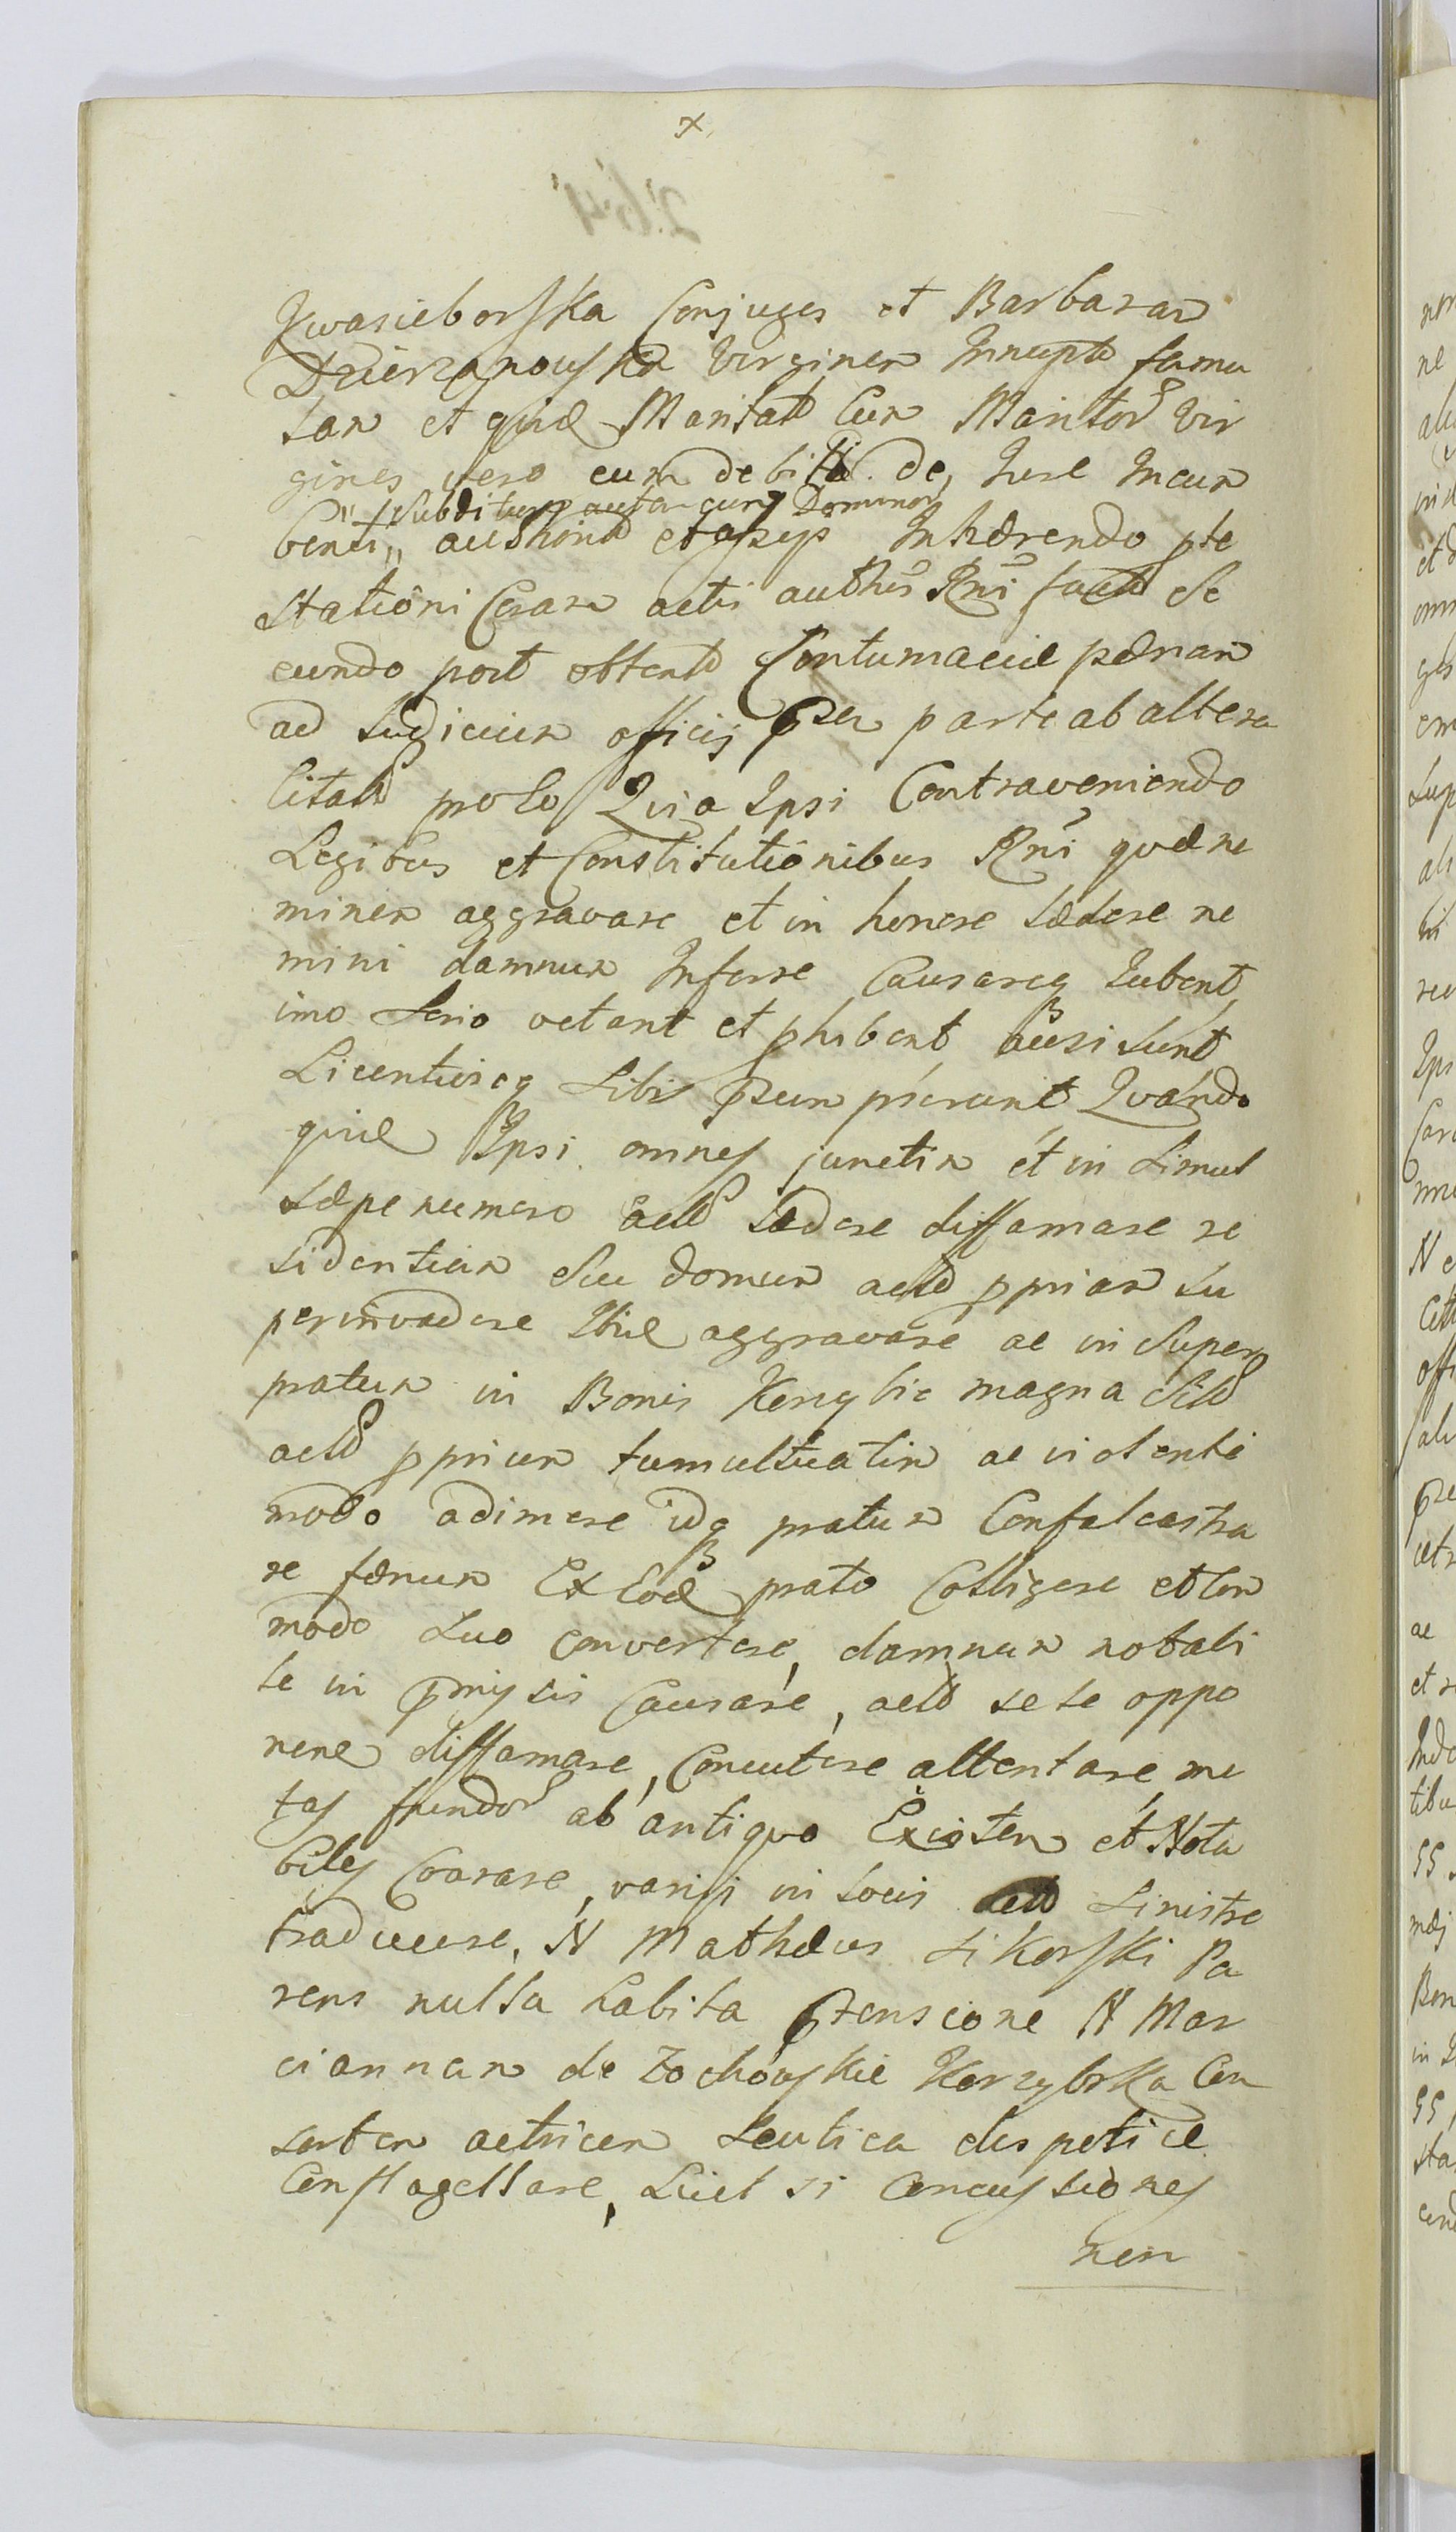 x
264
Kwasieborska Conjuges et Barbaram
Dzierzanowska Virginem Innupta famu
lam et quid Maritat Cum Maritor Vir
gines vero cum debita de Jure Incum
Subditum autem cum Dominor
benti authorit et assys Inhærendo pte
stationi Coram actis authis Rni facta Se
cundo post obtent Contumaciæ pænam
ad Judicium officij psen parte ab altera
Citatt prolo Quia Ipsi Contraveniendo
Legibus et Constitutionibus Rni quæ ne
minem aggravare et in honore lædere ne
mini damnum Inferre Causareq Jubent
imo Serio vetant et phibent ausi sunt
Licentiasq Sibi psum pserunt Quando
quid Ipsi omnes junctim et in simul
sæpe numero acto lædere diffamare re
sidentiam Seu domum acto ppriam su
per invadere Ibid aggravare ac in Super
pratum in Bonis Kerzybie magna Sito
acto pprium tumultuatim ac violenti
modo adimere idq pratum Confalcastra
re fænum Ex Eod prato Colligere et Com
modo Suo convertere, damnum notabi
le in pmissis Causare, acto sese oppo
nen diffamare, Concutere attentare, me
tas fundor ab antiquo Existen et Nota
biles Coarare, varijs in locis acto Sinistre
traducere, N Mathæus Sikorski Pa
rens nulla habita ptensione N Mar
ciannam de Zochowskie Kerzybska Con
sortem actricem Scutica dispotice
Conflagellare, Sicut si Concussiones
nen